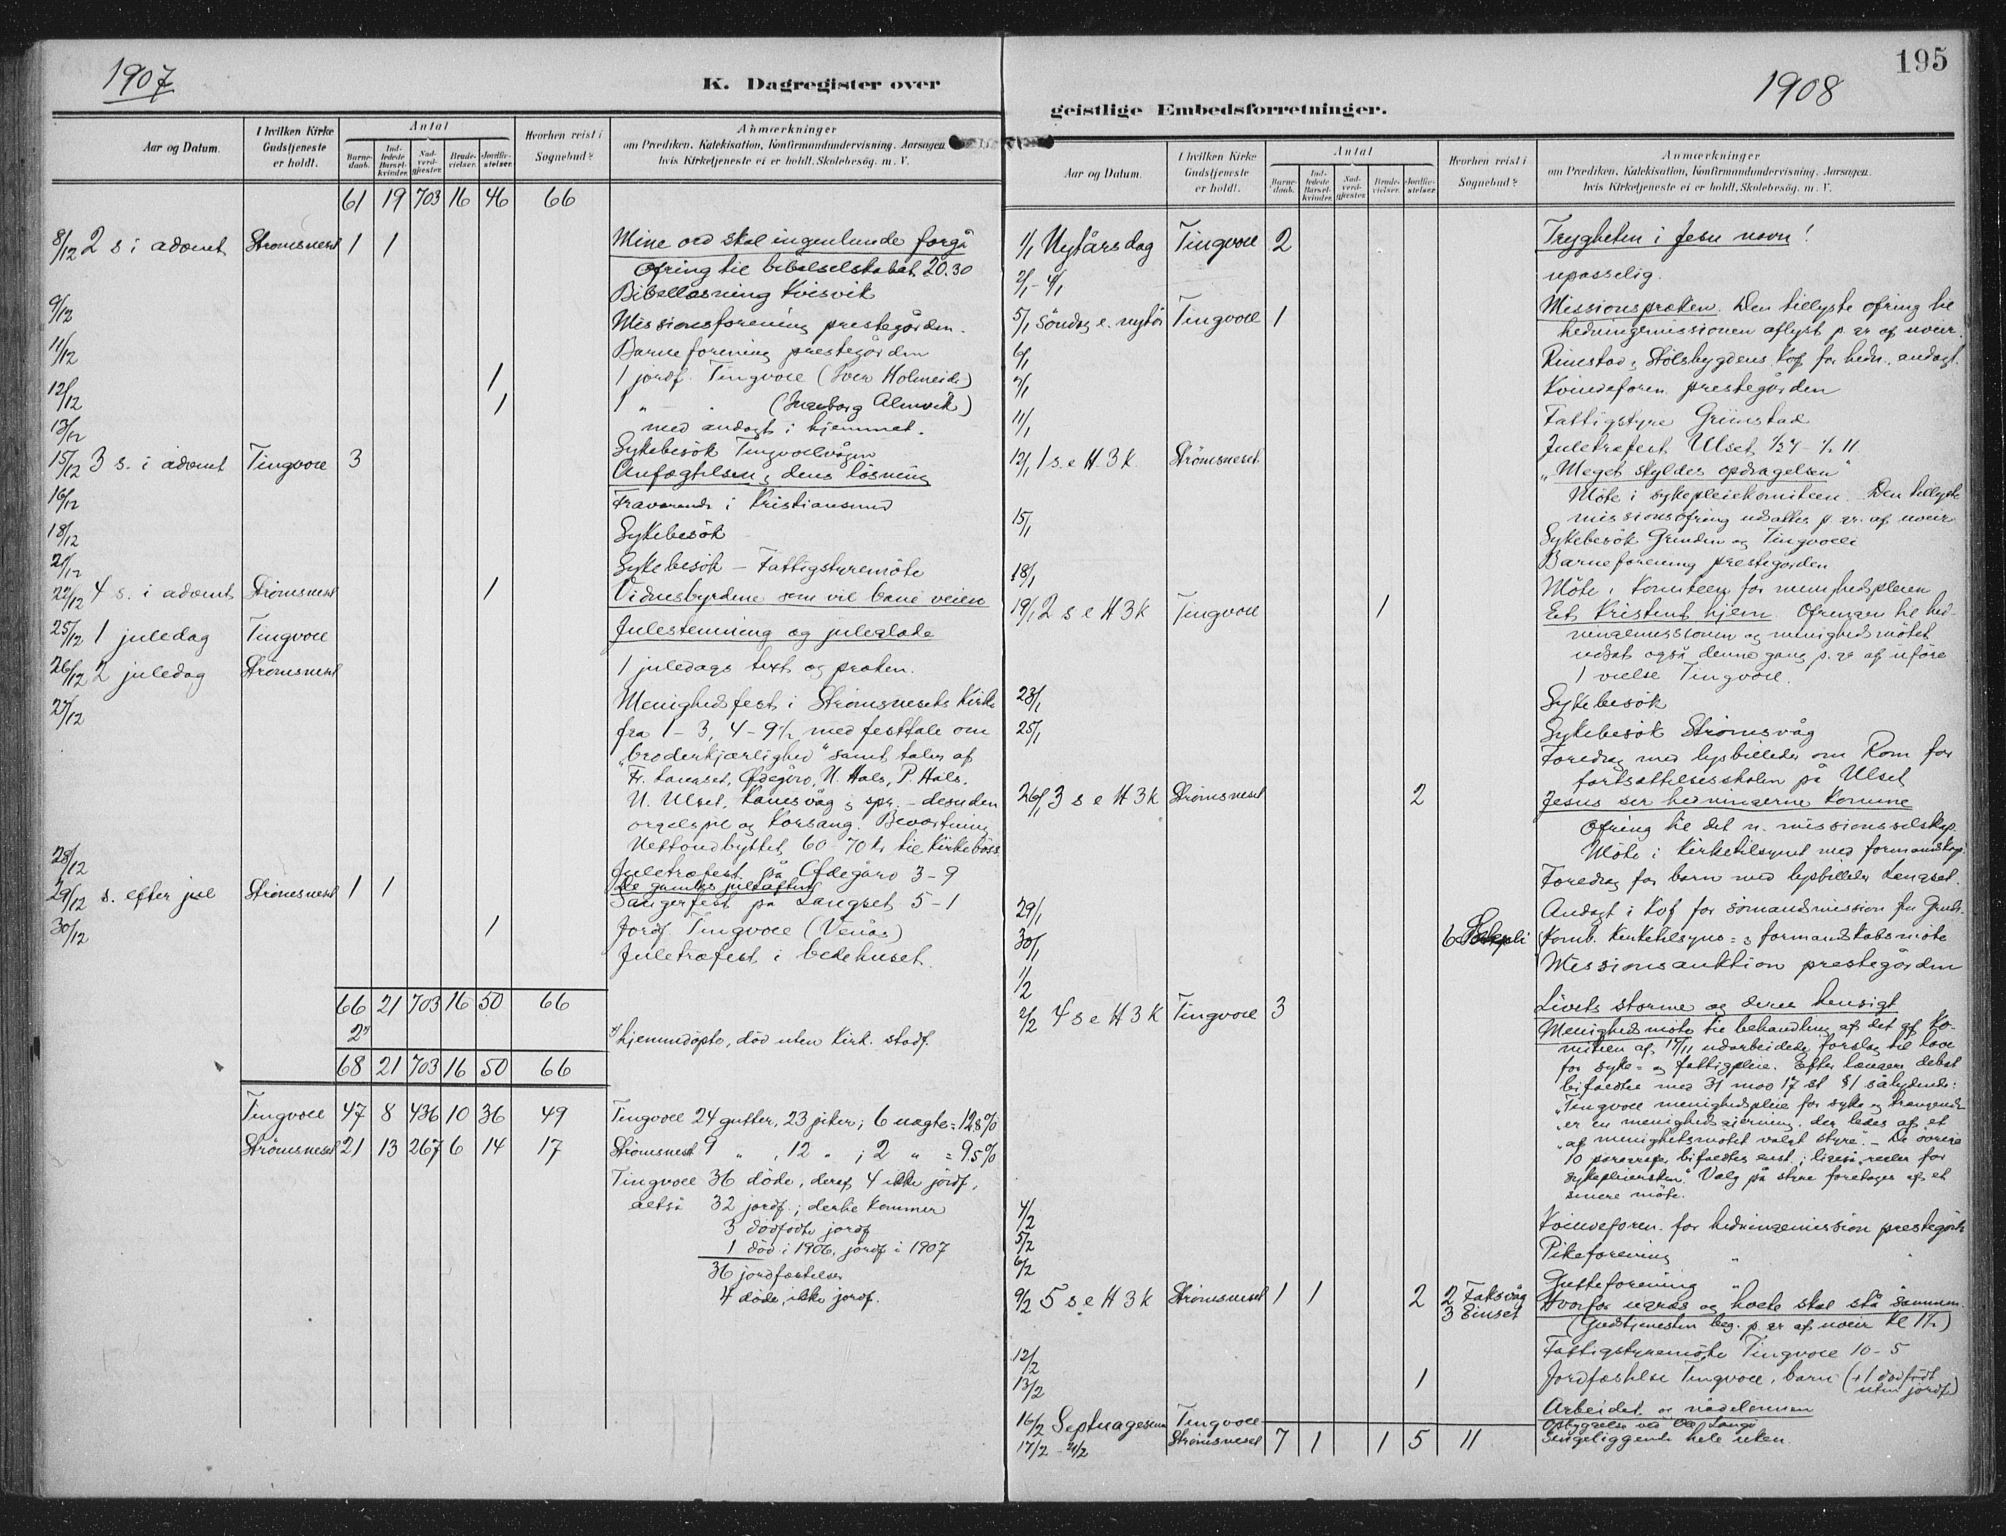 1907
K. Dagregister over
Aar og Datum.
I hvilken Kirke Gudstjeneste er holdt.
Antal
Barne-daab.
Ind-ledede Barsel-kvinder.
Nad-verd-gjæster.
Brude-vielser.
Jordfæ-stelser.
Hvorhen reist i Sognebud?
Anmærkninger
om Prædiken, Katekisation, Konfirmandundervisning. Aarsagen
hvis Kirketjeneste ei er holdt. Skolebesøg. m. V.
61 19 703 16 46 66
8/12 2 s i advent Strømsneset 1 1 Mine ord skal ingenlunde forgå
Ofring til bibelselskabet 20.30
Bibellæsning Kvisvik
9/12 Missionsforening prestegården.
11/12 Barneforening prestegården
12/12 1 1 jordf. Tingvoll (Iver Holmeide)
13/12 1 1 " (Ingeborg Almvik)
med andagt i hjemmet.
Sykebesök Tingvollvågen
15/12 3 s. i advent Tingvoll 3 Anfægtelsen & dens løsning
16/12 Fraværende i Kristiansund
18/12 Sykebesök
21/12 Sykebesök - Fattigstyremöte
22/12 4 s. i advent Strømsneset 1 Vidnesbyrdene som vil bane veien
25/12 1 juledag Tingvoll Julestemning og juleglæde
26/12 2 juledag Strømsneset 1 juledags text og præken.
27/12 Menighedsfest i Strømsnesets Kirke
fra 1-3, 4-9½ med festtale om
"broderkjærlighed" samt taler af
Fr. Langset, Ødegård, N. Hals, P. Hals,
N. Ulset, Kanesvåg & spr. - desuden
orgelspil og korsang. Bevertning
Nettoudbyttet 60-70 kr til kirkebøss.
28/12 Juletræfest på Ødegård 3-9
29/12 s. efter jul Strømsneset 1 1 De gamles juleaften
Sangerfest på Langset 5-1
30/12 1 Jordf. Tingvoll (Venås)
Juletræfest i bedehuset.
66 21 703 16 50 66
2*) *) hjemmedöpte, död uten kirk. stadf.
68 21 703 16 50 66
Tingvoll 47 8 436 10 36 49 Tingvoll 24 gutter, 23 piker; 6 uægte = 12,8 %
Strømsneset 21 13 267 6 14 17 Strømsneset 9 " , 12 " ; 2 " = 9,5 %
Tingvoll 36 döde, deraf 4 ikke jordf.
altså 32 jordf.; dertil kommer
3 dödfödte jordf
1 död i 1906, jordf i 1907
36 jordfæstelser
4 döde, ikke jordf.
195
1908
geistlige Embedsforretninger.
Aar og Datum.
I hvilken Kirke Gudstjeneste er holdt.
Antal
Barne-daab.
Ind-ledede Barsel-kvinder.
Nad-verd-gjæster.
Brude-vielser.
Jordfæ-stelser.
Hvorhen reist i Sognebud?
Anmærkninger
om Prædiken, Katekisation, Konfirmandundervisning. Aarsagen
hvis Kirketjeneste ei er holdt. Skolebesøg. m. V.
1/1 Nytårsdag Tingvoll 2 Trygheten i Jesu navn!
2/1 - 4/1 upasselig.
5/1 Söndag e. nytår Tingvoll 1 Missionspræken. Den tillyste ofring til
hedningemissionen aflyst p. gr. af uveir.
6/1 Rimstad & Stölsbygdens Kvf for hedn. andagt.
7/1 Kvindeforen. prestegården
11/1 Fattigstyre Grimstad
Juletræfest Ulset
12/1 1 s e H. 3 k. Strömsneset "Meget skyldes opdragelsen"
Möte i sykepleiekomiteen. Den tillyste
missionsofring udsattes p. gr. af uveir.
15/1 Sykebesök Grinden og Tingvoll
Barneforening prestegården
18/1 Möte i komiteen for menighedspleien
19/1 2 s e H 3 k Tingvoll 1 Et kristent hjem Ofringen til hed-
ningemissionen og menighedsmötet
udsat også denne gang p. gr. af uföre
1 vielse Tingvoll.
23/1 Sykebesök
25/1 Sykebesök Strömsvåg
Foredrag med lysbilleder om Rom for
fortsættelsesskolen på Ulset
26/1 3 s e H 3 k Strömsneset 2 Jesus ser hedningerne komme
Ofring til det n. missionsselskap.
Möte i kirketilsynet med formandskap.
Foredrag for barn med lysbilleder Langset.
29/1 Andagt i Kvf for sömandsmission
30/1 6 Komb. kirketilsyns- & formandskabsmöte
1/2 Missionsauktion prestegården
2/2 4 s e H 3 k Tingvoll 3 Livets storme og deres hensigt
Menighedsmöte til behandling af det af ko-
mitéen af 17/11 udarbeidede forslag til love
for syke- og fattigpleie. Efter længere debat
bifaldtes med 31 mod 17 st § 1 sålydende:
"Tingvoll menighedspleie for syke og trængende
"er en menighedsgjerning, der ledes af et
"af menighetsmötet valgt styre". - De övrige
10 paragrafer bifaldtes enst.; ligeså regler for
sykepleiersken". Valg på styre foretages af et
senere möte.
4/2 Kvindeforen. for hedningemission prestegård
5/2 Pikeforening "
6/2 Gutteforening "
9/2 5 s e H 3 k Strömsneset 1 1 2 2 Faksvåg Hvorfor ugræs og hvete skal stå sammen.
3 Einset (Gudstjenesten beg. p. gr. af uveir kl 1½)
12/2 Fattigstyremöte Tingvoll 10-5
13/2 1 Jordfæstelse Tingvoll, barn (+ 1 dödfödt
uten jordf.)
16/2 Septuagesima Tingvoll Arbeidet og nådelönnen
Opbyggelse ved Ole Langö
17/2 - 21/2 Strömsneset 7 1 1 5 11 Sengeliggende hele uken.